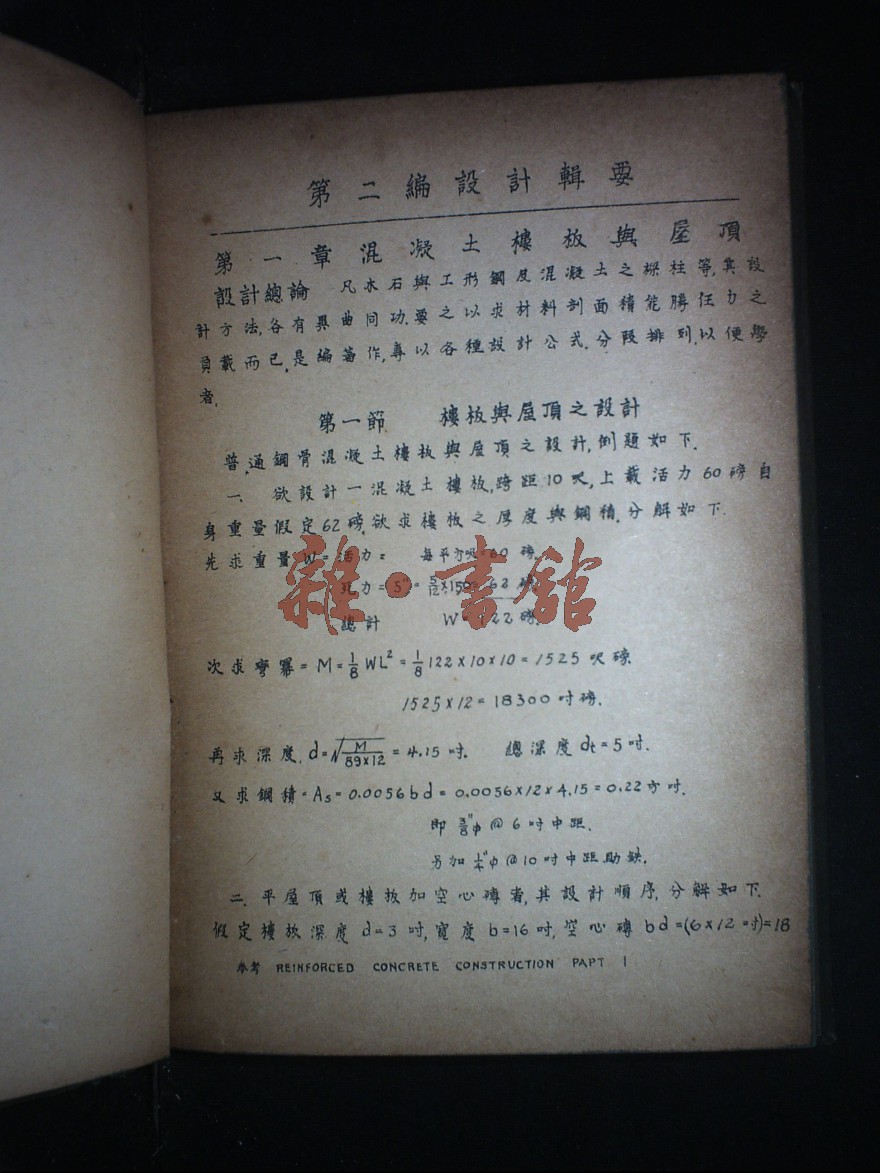 第二編設計輯要
第一章混凝土樓板與屋頂
設計總論 凡木石與工形鋼及混凝土之樑柱等,其設
計方法,各有異曲同功,要之以求材料剖面積能勝任力之
負載而已,是編著作,專以各種設計公式,分段排列,以便學
者,
第一節 樓板與屋頂之設計
普通鋼骨混凝土樓板與屋頂之設計,例題如下.
一、 欲設計一混凝土樓板,跨距10呎,上載活力60磅自
身重量假定62磅,欲求樓板之厚度與鋼積,分解如下.
先求重量W=活力= 每平方呎=60磅.
死力=5"=5/12×150=62磅
總計 W=122磅.
次求彎冪=M=1/8WL²=1/8 122×10×10=1525呎磅.
1525×12=18300吋磅.
再求深度,d=√(M/89×12)=4.15吋. 總深度dt=5吋.
又求鋼積=As=0.0056bd=0.0056×12×4.15=0.22方吋.
即3/8"φ@6吋中距.
另加1/4"φ@10吋中距助鉄.
二.平屋頂或樓板加空心磚者,其設計順序,分解如下.
假定樓板深度d=3吋,寬度b=16吋,空心磚bd=(6×12=吋)=18
參考 REINFORCED CONCRETE CONSTRUCTION PAPT 1
雜·書館